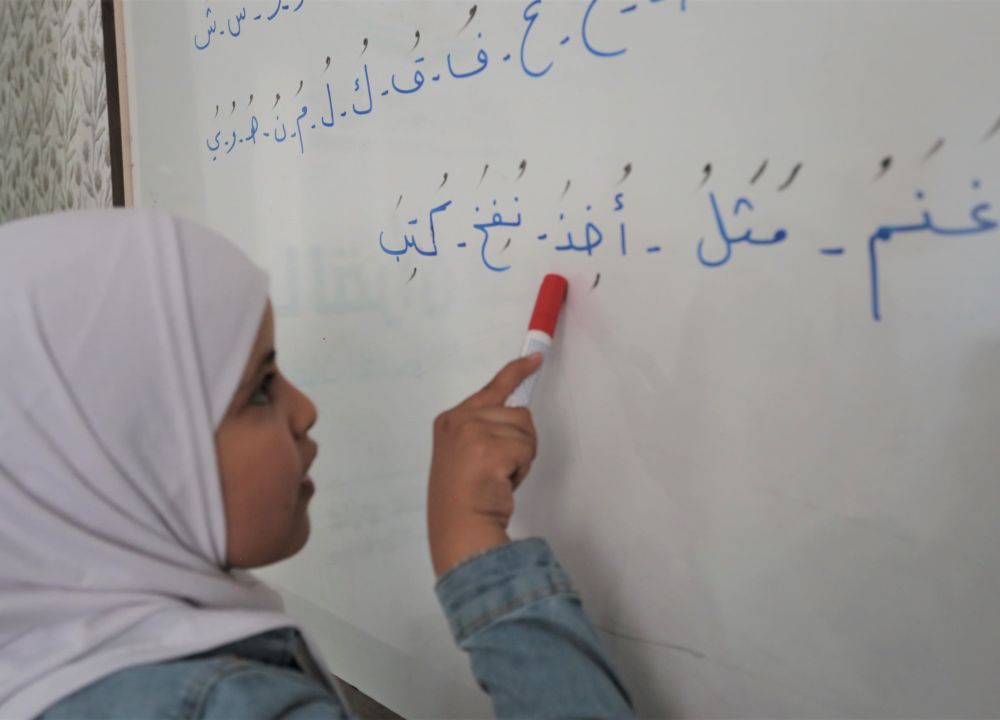 س - ش
فُ - قُ - كُ - لُ - مُ - نُ - هُ - وُ - يُ
غَنَمُ - مَثَلُ - أُخِذَ - نُفِخَ - كُتِبَ